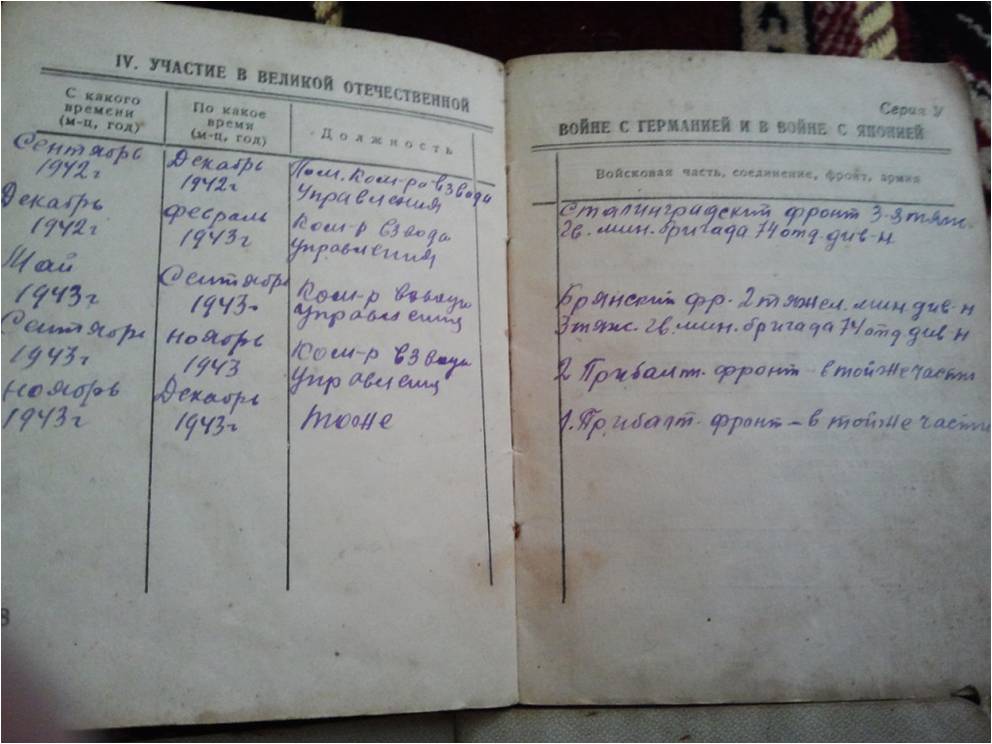 IV. УЧАСТИЕ В ВЕЛИКОЙ ОТЕЧЕСТВЕННОЙ
С какого времени (м-ц, год)
По какое время (м-ц, год)
Должность
Сентябрь 1942г
Декабрь 1942г
Пом. Ком-ра взвода
Управления
Декабрь 1942г
Февраль 1943г
Ком-р взвода
управления
Май 1943г
Сентябрь 1943г
Ком-р взвода
Управления
Сентябрь 1943г
Ноябрь 1943
Ком-р взвода
Управления
Ноябрь 1943г
Декабрь 1943г
тоже
Серия У
ВОЙНЕ С ГЕРМАНИЕЙ И В ВОЙНЕ С ЯПОНИЕЙ
Войсковая часть, соединение, фронт, армия
Сталинградский фронт 3-я тяж.
Гв. мин. бригада 74 отд. див-н
Брянский фр. 2 тяжел. мин див-н
3 тяж. гв. мин. бригада 74 отд див-н
2 Прибалт. фронт - в той же части
1. Прибалт. фронт - в той же части
8